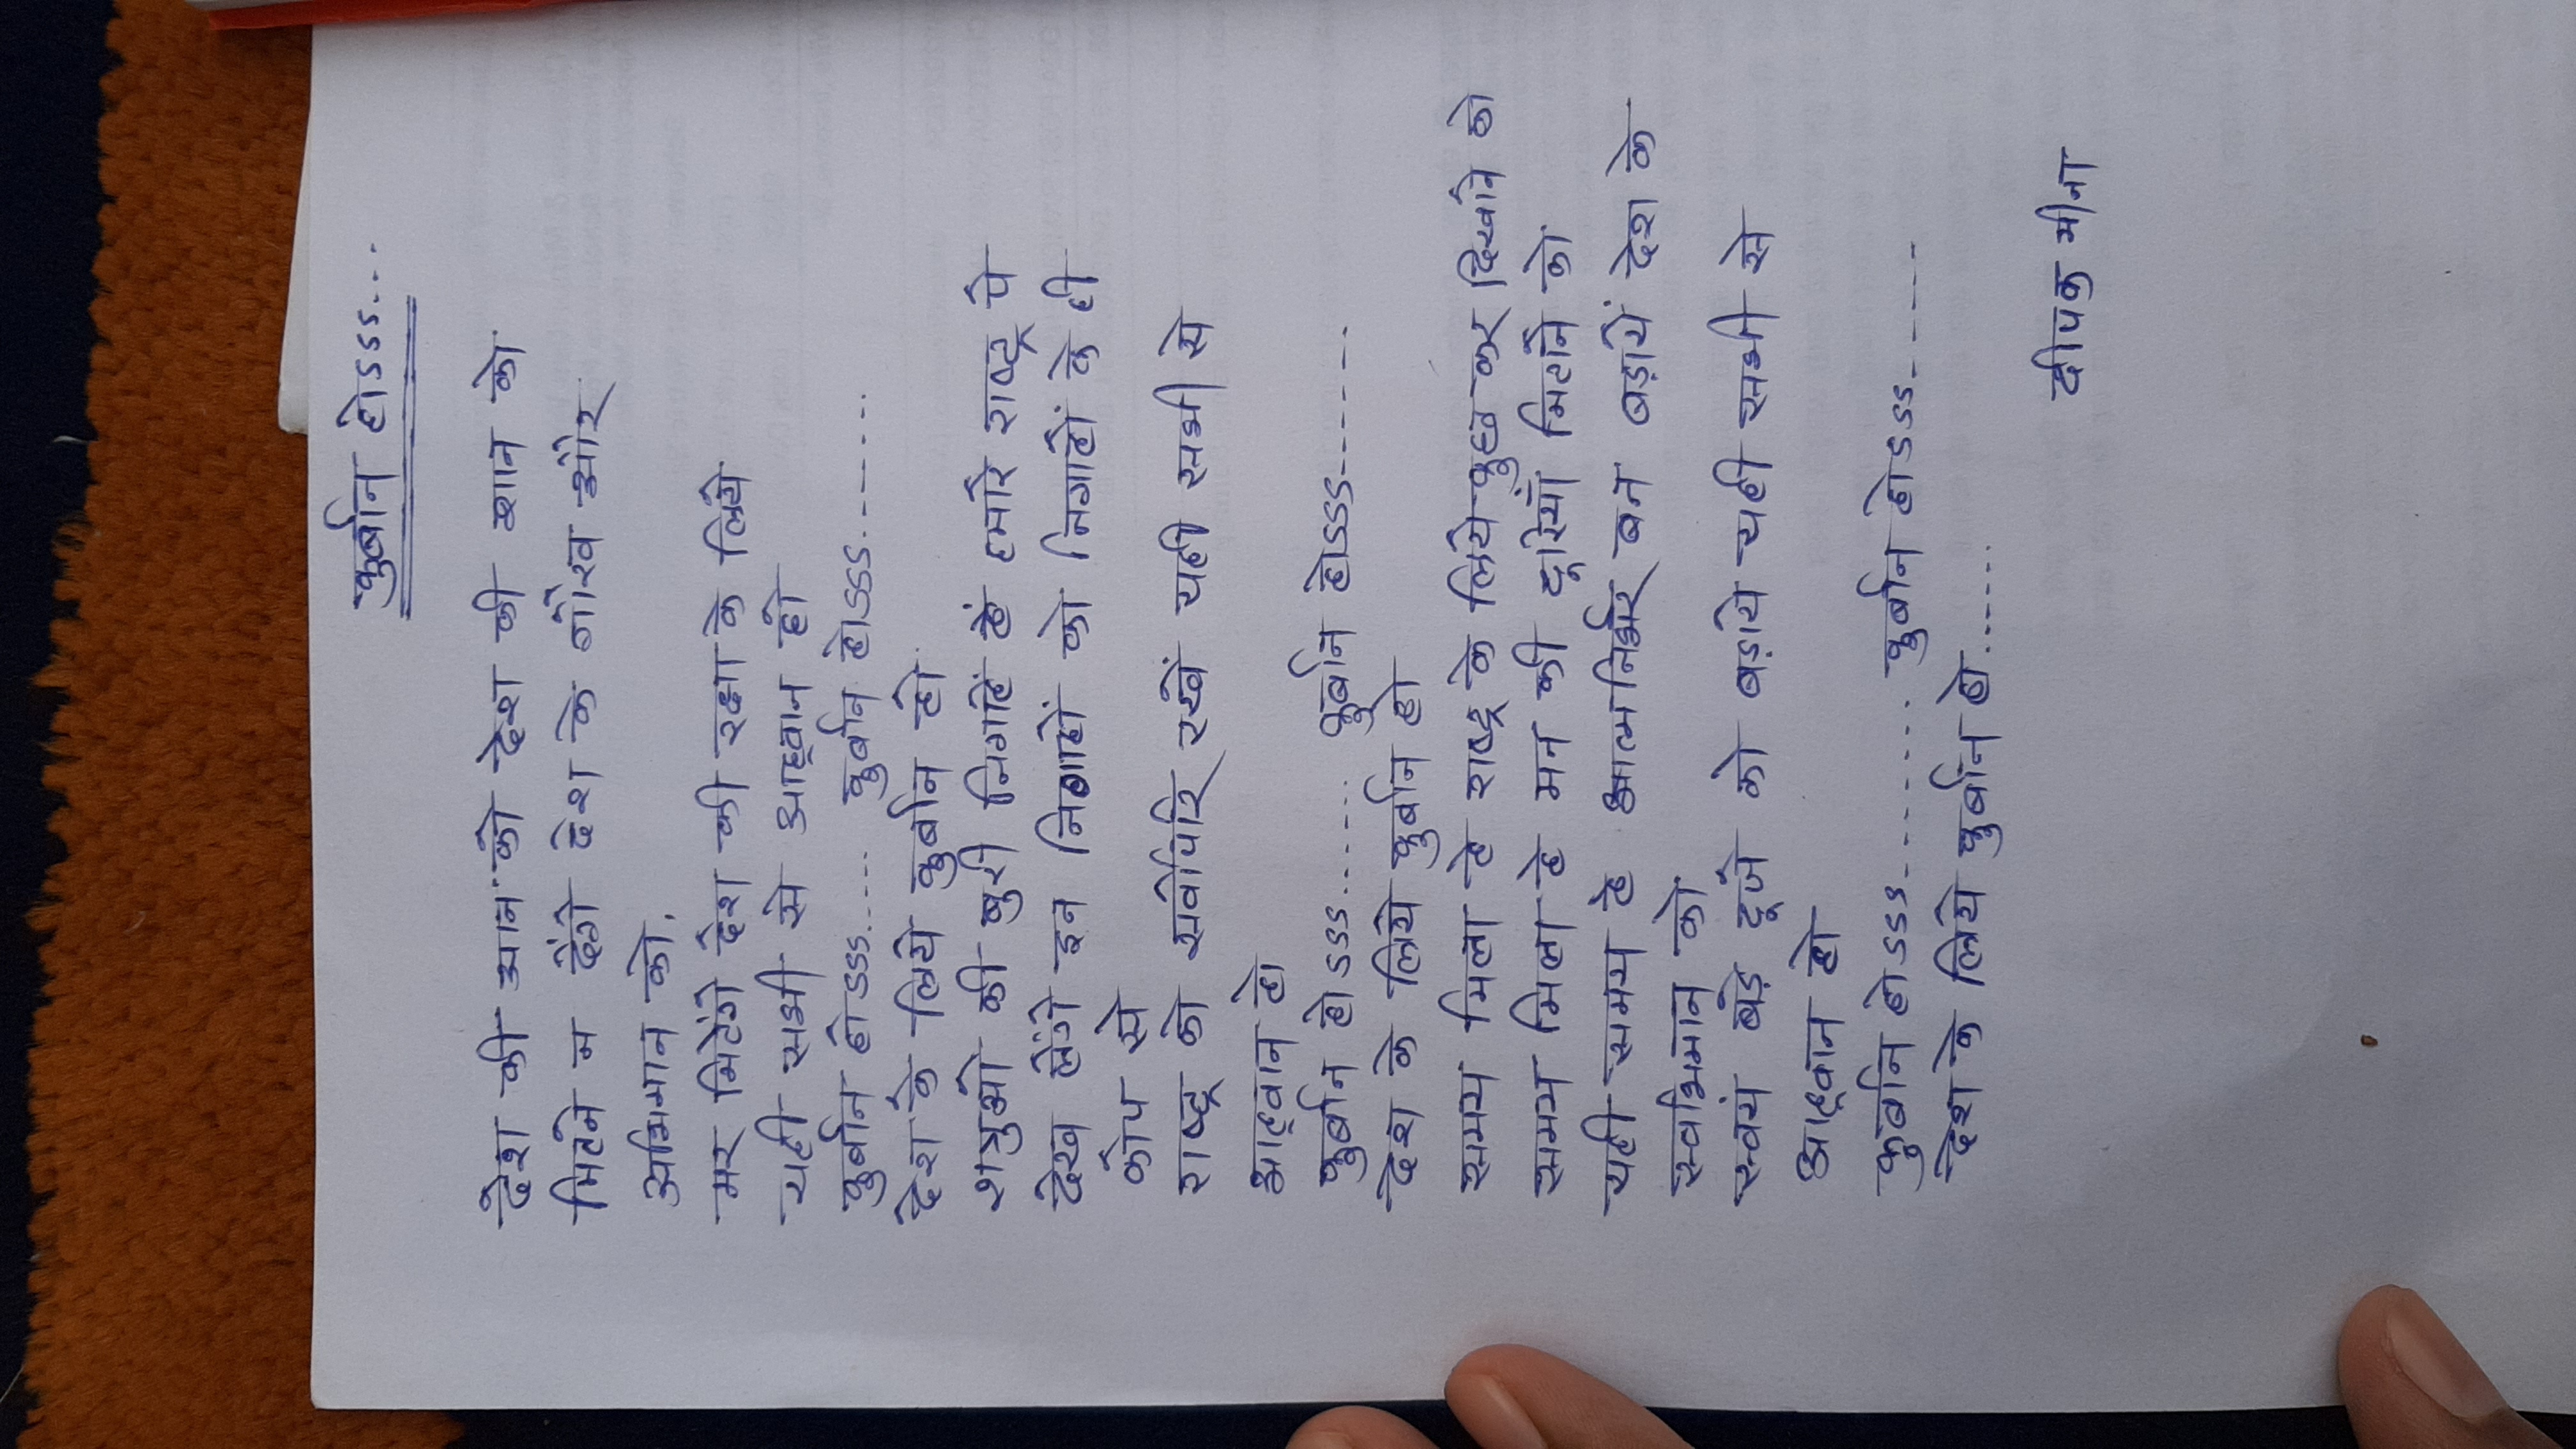 कुर्बान होऽऽऽ...
देश की आन को देश की शान को
मिटने न देंगे देश के गौरव और
अभिमान को,
मर मिटेंगे देश की रक्षा के लिये
यही सभी से आह्वान हो
कुर्बान होऽऽऽ..... कुर्बान होऽऽऽ.......
देश के लिये कुर्बान हो
शत्रुओ की बुरी निगाहें हैं हमारे राष्ट्र पे
देख लेंगे इन निगाहों को निगाहों के ही
कोप से
राष्ट्र को सर्वोपरि रखें यही सभी से
आह्वान हो
कुर्बान होऽऽऽ....... कुर्बान होऽऽऽ.......
देश के लिये कुर्बान हो
समय मिला हे राष्ट्र के लिये कुछ कर दिखाने को
समय मिला हे मन की दूरियाँ मिटाने को
यही समय हे आत्मनिर्भर बन बड़ायें देश के
स्वाभिमान को
स्वयं बड़े दूजे को बड़ाये यही सभी से
आह्वान हो
कुर्बान होऽऽऽ......... कुर्बान होऽऽऽ......
देश के लिये कुर्बान हो......
दीपक मीना